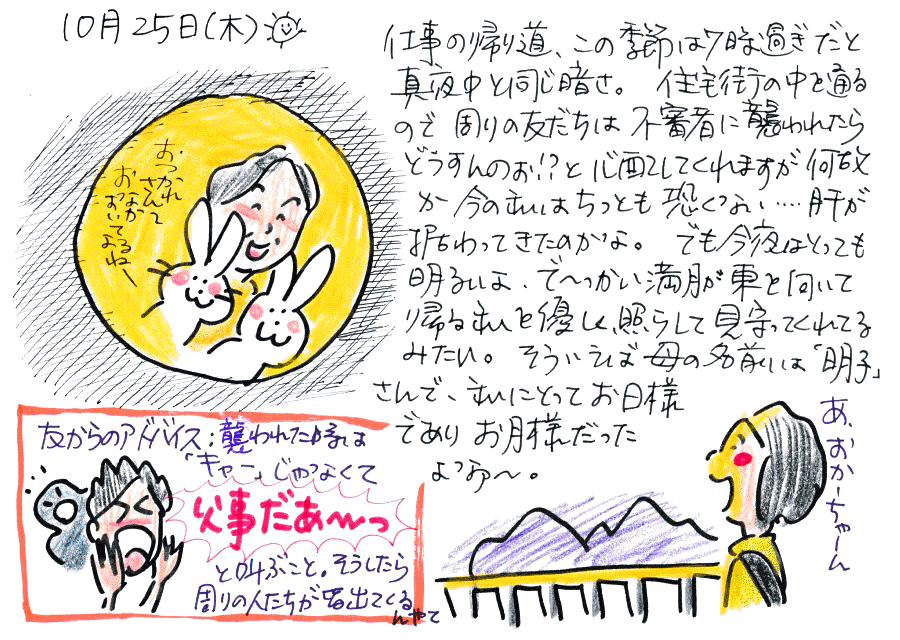 10月25日(木)
仕事の帰り道、この季節は7時過ぎだと
真夜中と同じ暗さ。 住宅街の中を通る
ので 周りの友だちは 不審者に襲われたら
どうすんのお!?と心配してくれますが 何故
か 今の私はちっとも恐くない‥‥肝が
据わってきたのかな。 でも今夜はとっても
明るいよ、でっかい満月が 車を向いて
帰る私を優しく照らして 見守ってくれてる
みたい。 そういえば 母の名前は「明子」
さんで、私にとって お日様
であり お月様だった
よなあ〜。
おつかれ
さんて
おなか
すいてる
よねー
あ、おかーちゃーん
友からのアドバイス:襲われた時は
「キャー」じゃなくて
火事だあ〜っ
と叫ぶこと。そうしたら
周りの人たちが皆出てくる
んやて